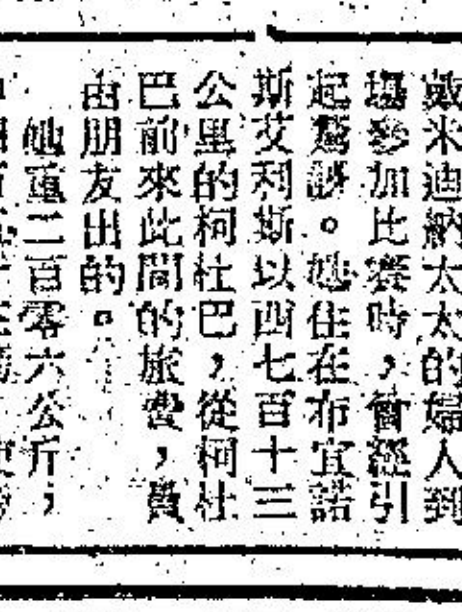 戴米迪納太太的婦人到
場參加比賽時，曾經引
起驚訝。她住在布宜諾
斯艾利斯以西七百十三
公里的柯杜巴，從柯杜
巴前來此間的旅費，費
由朋友出的。
她重二百零六公斤，